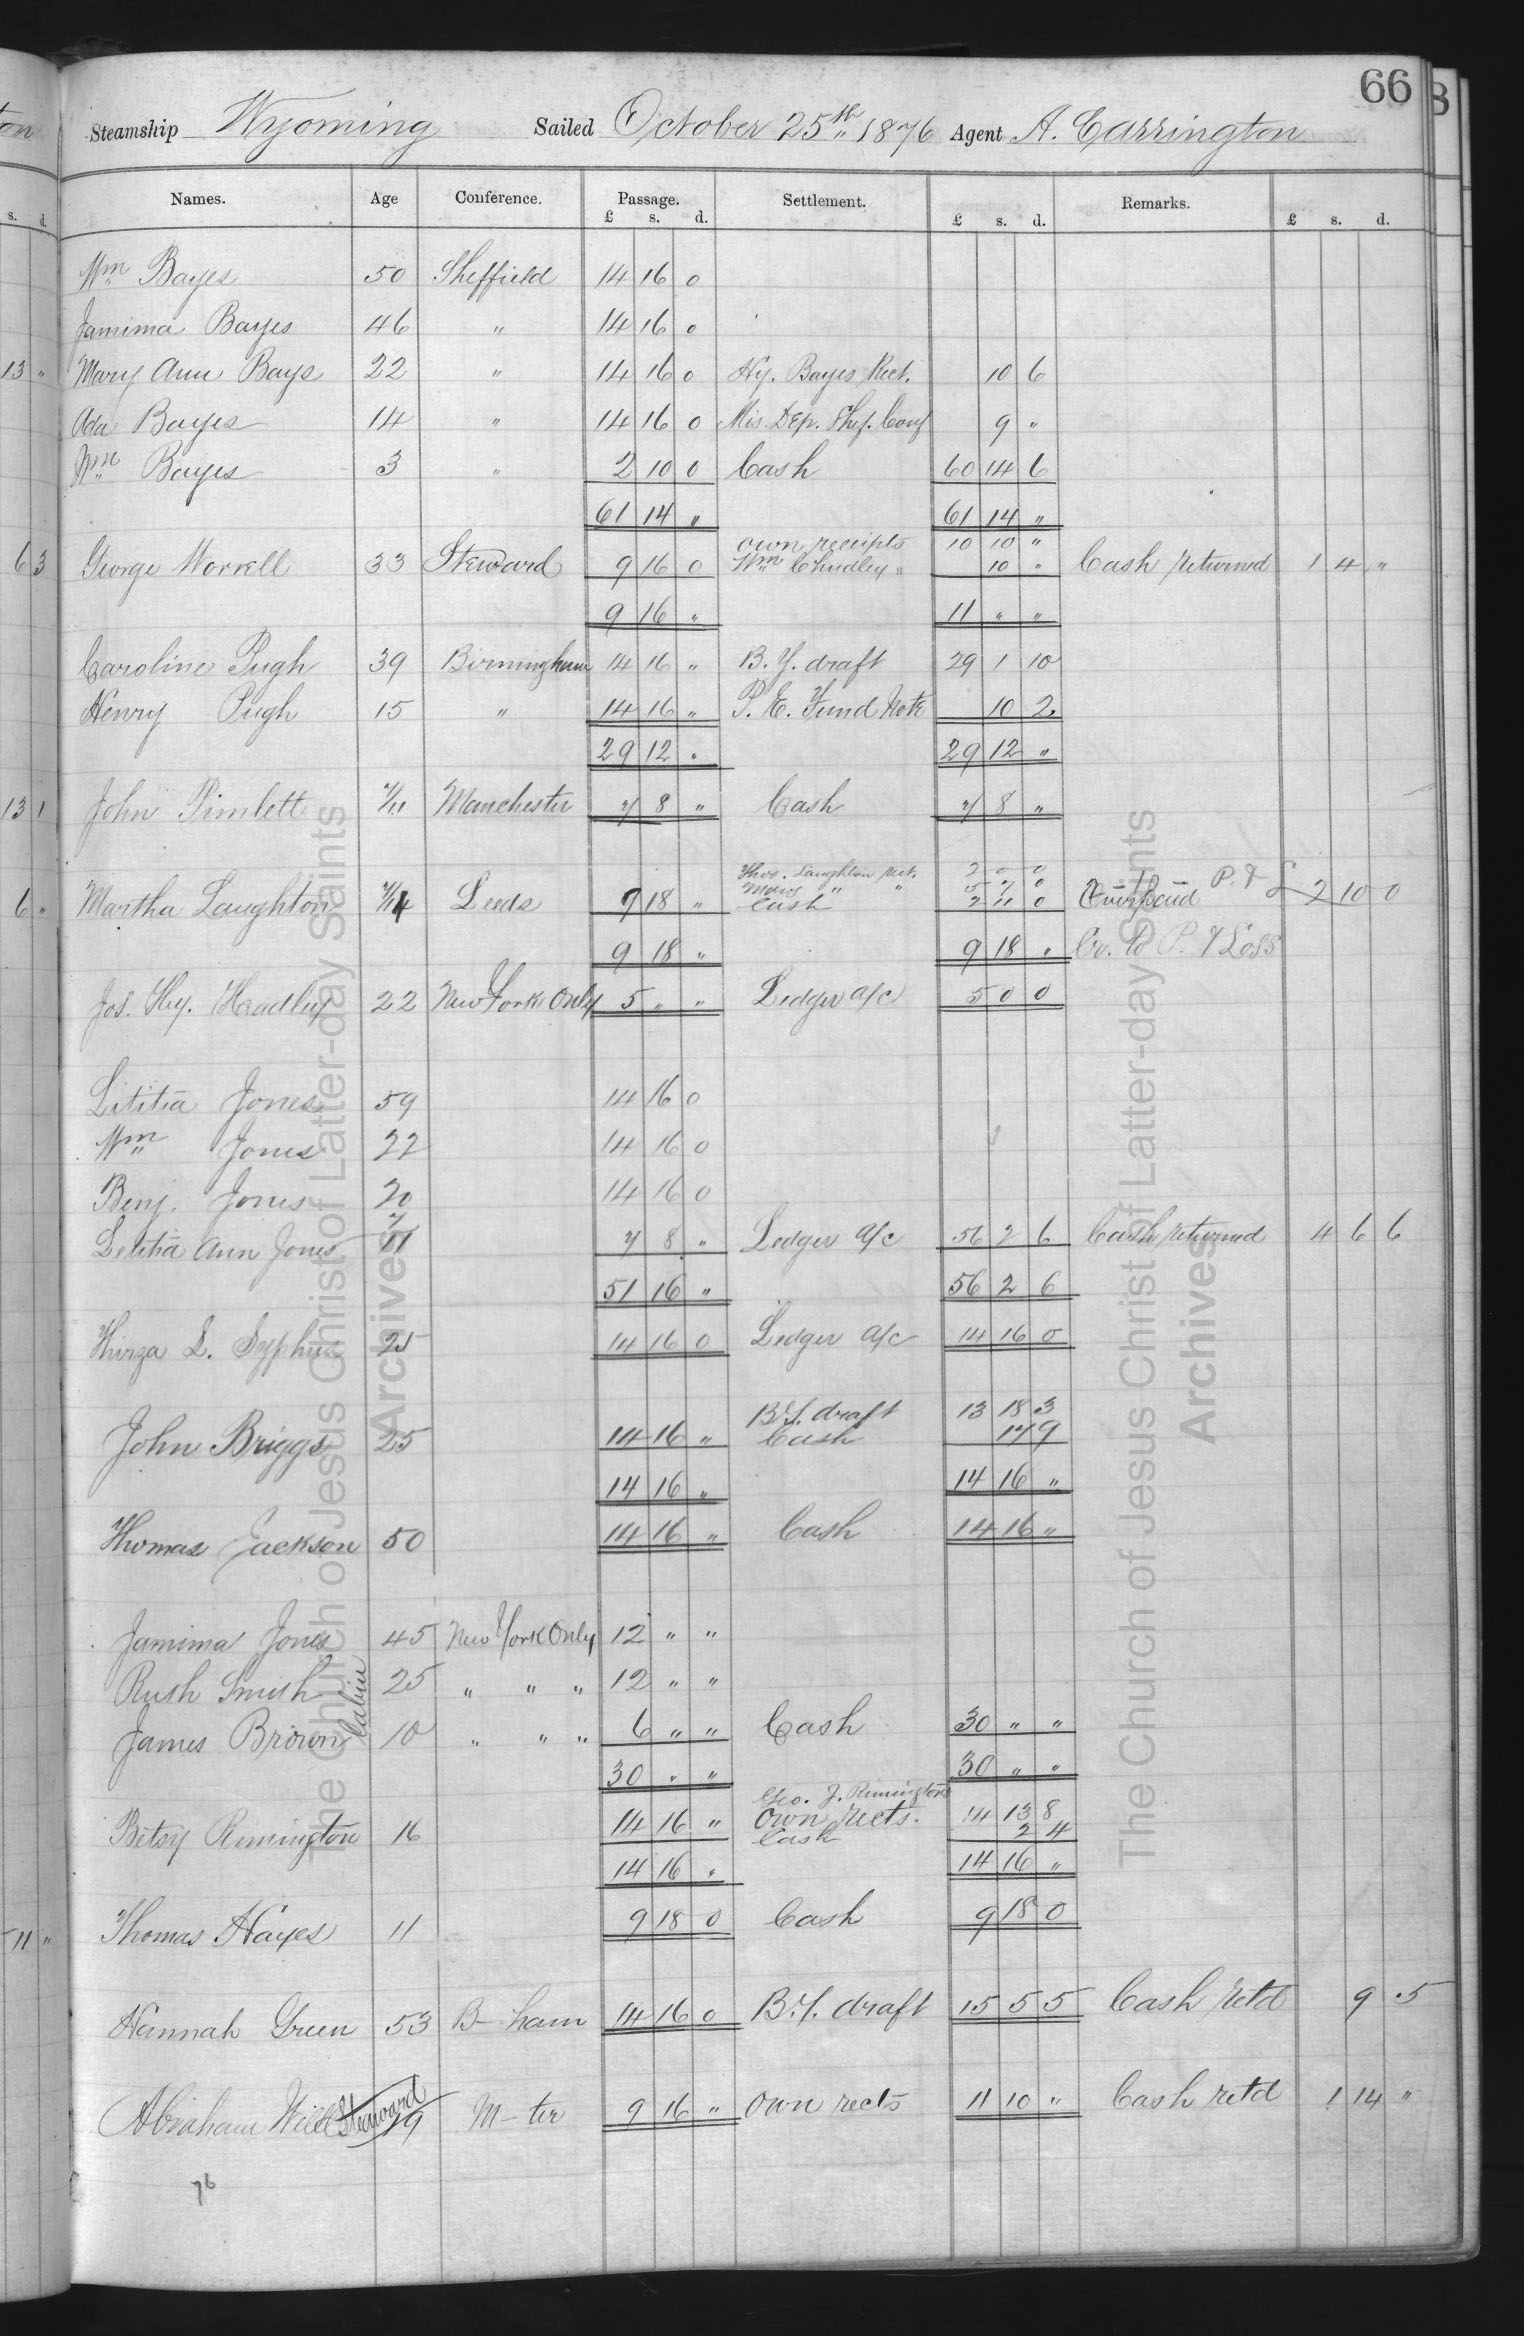 66
Steamship Wyoming Sailed October 25th 1876 Agent A. Carrington
Names. Age Conference. Passage. Settlement. Remarks.
£ s. d. £ s. d. £ s. d.
Wm Bayes 50 Sheffield 14 16 0
Jamima Bayes 46 " 14 16 0
Mary Ann Bays 22 " 14 16 0 Hy. Bayes Rect. 10 6
Ada Bayes 14 " 14 16 0 Mis. Dep. Shef. Conf 9 "
Wm Bayes 3 " 2 10 0 Cash 60 14 6
61 14 " 61 14 "
own receipts 10 10 "
George Morrell 33 Steward 9 16 0 Wm Chudley " 10 " Cash returned 1 4 "
9 16 " 11 " "
Caroline Pugh 39 Birmingham 14 16 " B. Y. draft 29 1 10
Henry Pugh 15 " 14 16 " P. E. Fund Note 10 2
29 12 " 29 12 "
John Pimlett 7/11 Manchester 7 8 " Cash 7 8 "
Thos. Laughton rect. 2 0 0
Martha Laughton Leeds 9 18 " " " 5 7 0 Overpaid P. & L 2 10 0
Cash 2 11 0
9 18 " 9 18 " Cr. to P. & Loss
Jos. Hy. Hadley 22 New York Only 5 " " Ledger a/c 5 0 0
Lititia Jones 59 14 16 0
Wm Jones 22 14 16 0
Benj. Jones 20 14 16 0
Letitia Ann Jones 7/11 7 8 " Ledger a/c 56 2 6 Cash returned 4 6 6
51 16 " 56 2 6
L. Syphus 25 14 16 0 Ledger a/c 14 16 0
B.Y. draft 13 18 3
John Briggs 25 14 16 " Cash 17 9
14 16 " 14 16 "
Thomas Jackson 50 14 16 " Cash 14 16 "
Jamima Jones 45 New York Only 12 " "
Ruth Smith Cabin 25 " " " 12 " "
James Brown 10 " " " 6 " " Cash 30 " "
30 " " 30 " "
Geo. J. Rimington
Betsy Rimington 16 14 16 " Own rects. 14 13 8
Cash 2 4
14 16 " 14 16 "
Thomas Hayes 11 9 18 0 Cash 9 18 0
Hannah Green 53 B-ham 14 16 0 B.Y. draft 15 5 5 Cash retd 9 5
Abraham Will Steward 19 M-ter 9 16 " Own rects 11 10 " Cash retd 1 14 "
76
The Church of Jesus Christ of Latter-day Saints
Archives
The Church of Jesus Christ of Latter-day Saints
Archives